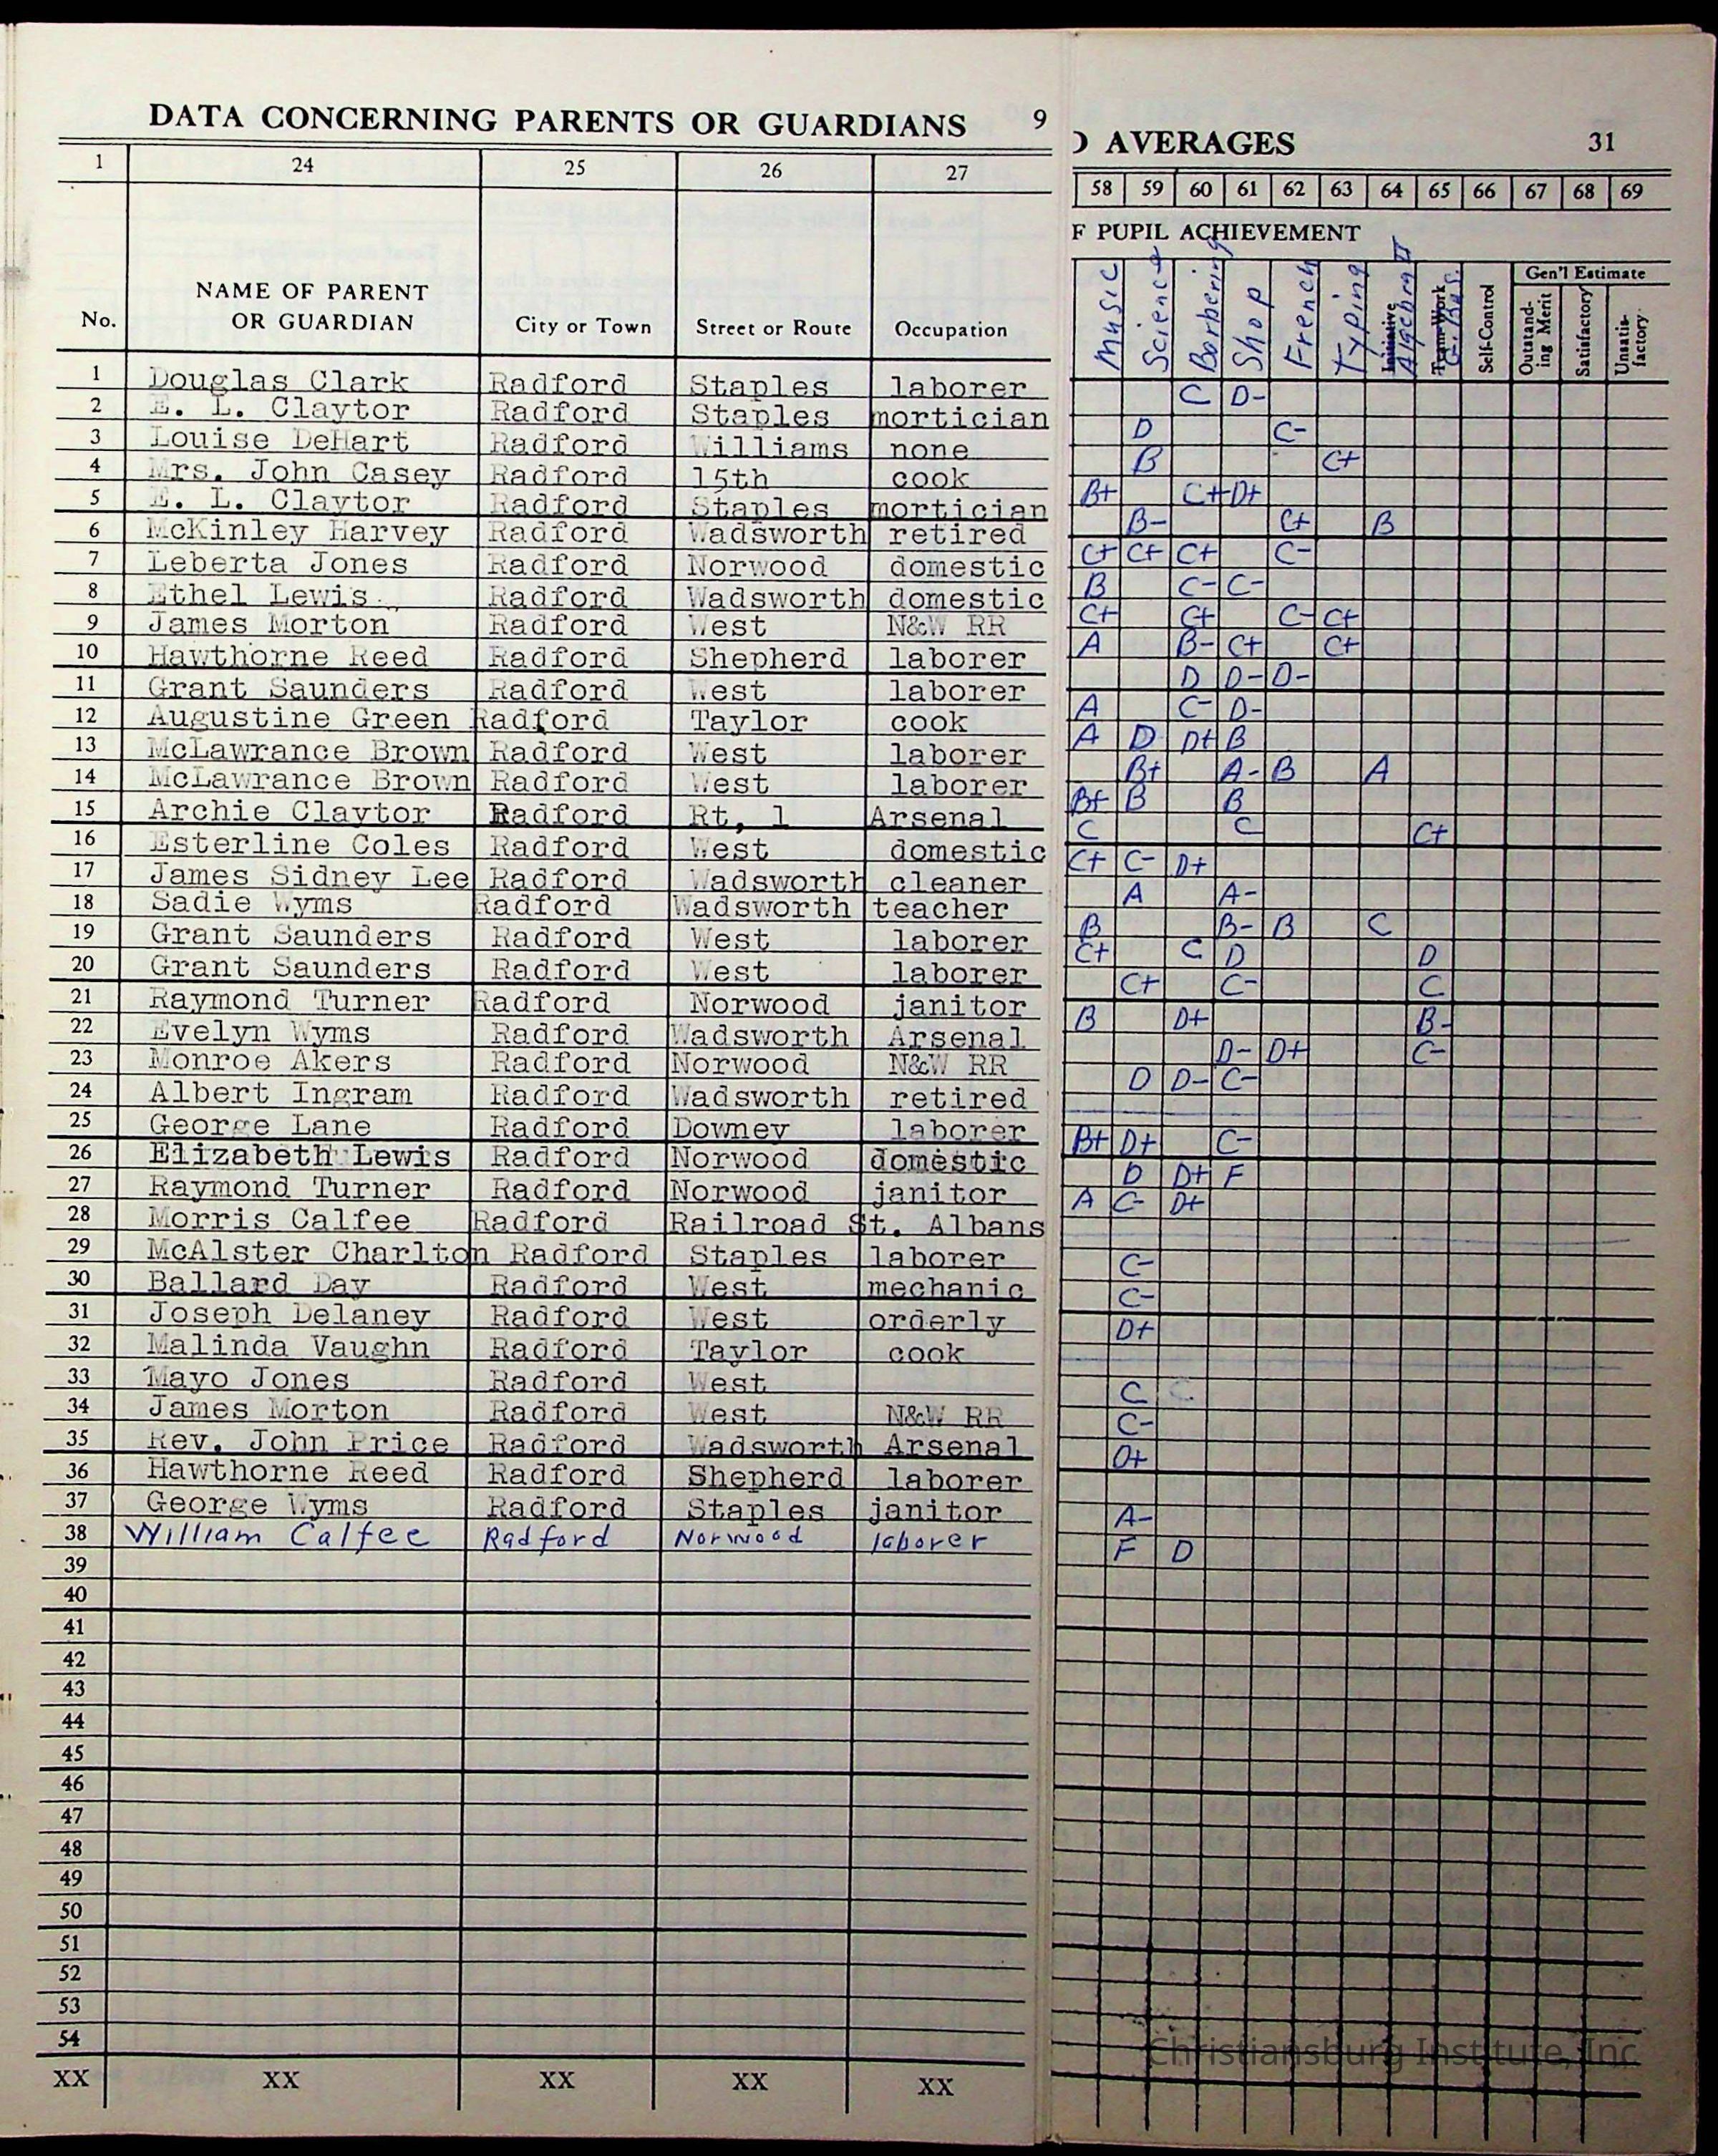 DATA CONCERNING PARENTS OR GUARDIANS 9
1 24 25 26 27
No. NAME OF PARENT OR GUARDIAN City or Town Street or Route Occupation
1 Douglas Clark Radford Staples laborer
2 E. L. Claytor Radford Staples mortician
3 Louise DeHart Radford Williams none
4 Mrs. John Casey Radford 15th cook
5 E. L. Claytor Radford Staples mortician
6 McKinley Harvey Radford Wadsworth retired
7 Leberta Jones Radford Norwood domestic
8 Ethel Lewis Radford Wadsworth domestic
9 James Morton Radford West N&W RR
10 Hawthorne Reed Radford Shepherd laborer
11 Grant Saunders Radford West laborer
12 Augustine Green Radford Taylor cook
13 McLawrance Brown Radford West laborer
14 McLawrance Brown Radford West laborer
15 Archie Claytor Radford Rt, 1 Arsenal
16 Esterline Coles Radford West domestic
17 James Sidney Lee Radford Wadsworth cleaner
18 Sadie Wyms Radford Wadsworth teacher
19 Grant Saunders Radford West laborer
20 Grant Saunders Radford West laborer
21 Raymond Turner Radford Norwood janitor
22 Evelyn Wyms Radford Wadsworth Arsenal
23 Monroe Akers Radford Norwood N&W RR
24 Albert Ingram Radford Wadsworth retired
25 George Lane Radford Downey laborer
26 Elizabeth Lewis Radford Norwood domestic
27 Raymond Turner Radford Norwood janitor
28 Morris Calfee Radford Railroad St. Albans
29 McAlster Charlton Radford Staples laborer
30 Ballard Day Radford West mechanic
31 Joseph Delaney Radford West orderly
32 Malinda Vaughn Radford Taylor cook
33 Mayo Jones Radford West
34 James Morton Radford West N&W RR
35 Rev. John Price Radford Wadsworth Arsenal
36 Hawthorne Reed Radford Shepherd laborer
37 George Wyms Radford Staples janitor
38 William Calfee Radford Norwood laborer
39
40
41
42
43
44
45
46
47
48
49
50
51
52
53
54
XX XX XX XX XX
D AVERAGES 31
58 59 60 61 62 63 64 65 66 67 68 69
F PUPIL ACHIEVEMENT
Gen'l Estimate
Music Science Barbering Shop French Typing Initiative Algebra II Team-Work G. Bus. Self-Control Outstanding Merit Satisfactory Unsatisfactory
C D-
D C-
B C+
B+ C+ D+
B- C+ B
C+ C+ C+ C-
B C- C-
C+ C+ C- C+
A B- C+ C+
D D- D-
A C- D-
A D D+ B
B+ A- B A
B+ B B
C C C+
C+ C- D+
A A-
B B- B C
C+ C D D
C+ C- C
B D+ B-
D- D+ C-
D D- C-
B+ D+ C-
D D+ F
A C- D+
C-
C-
D+
C C
C-
D+
A-
F D
Christiansburg Institute, Inc